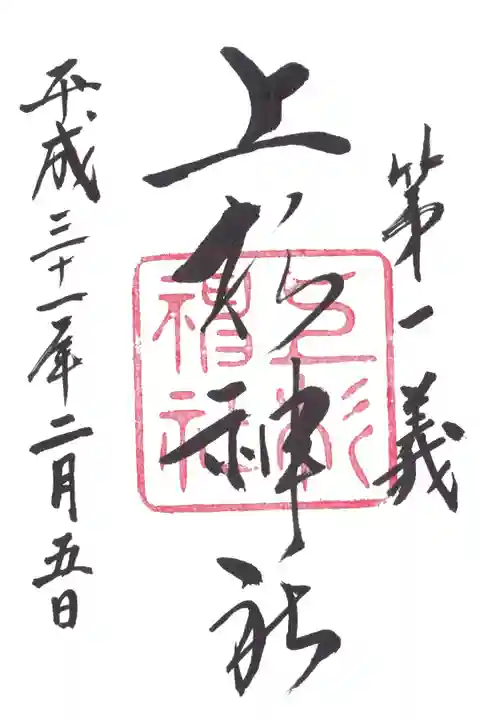 第一義
上杉神社
上杉神社
平成三十一年二月五日